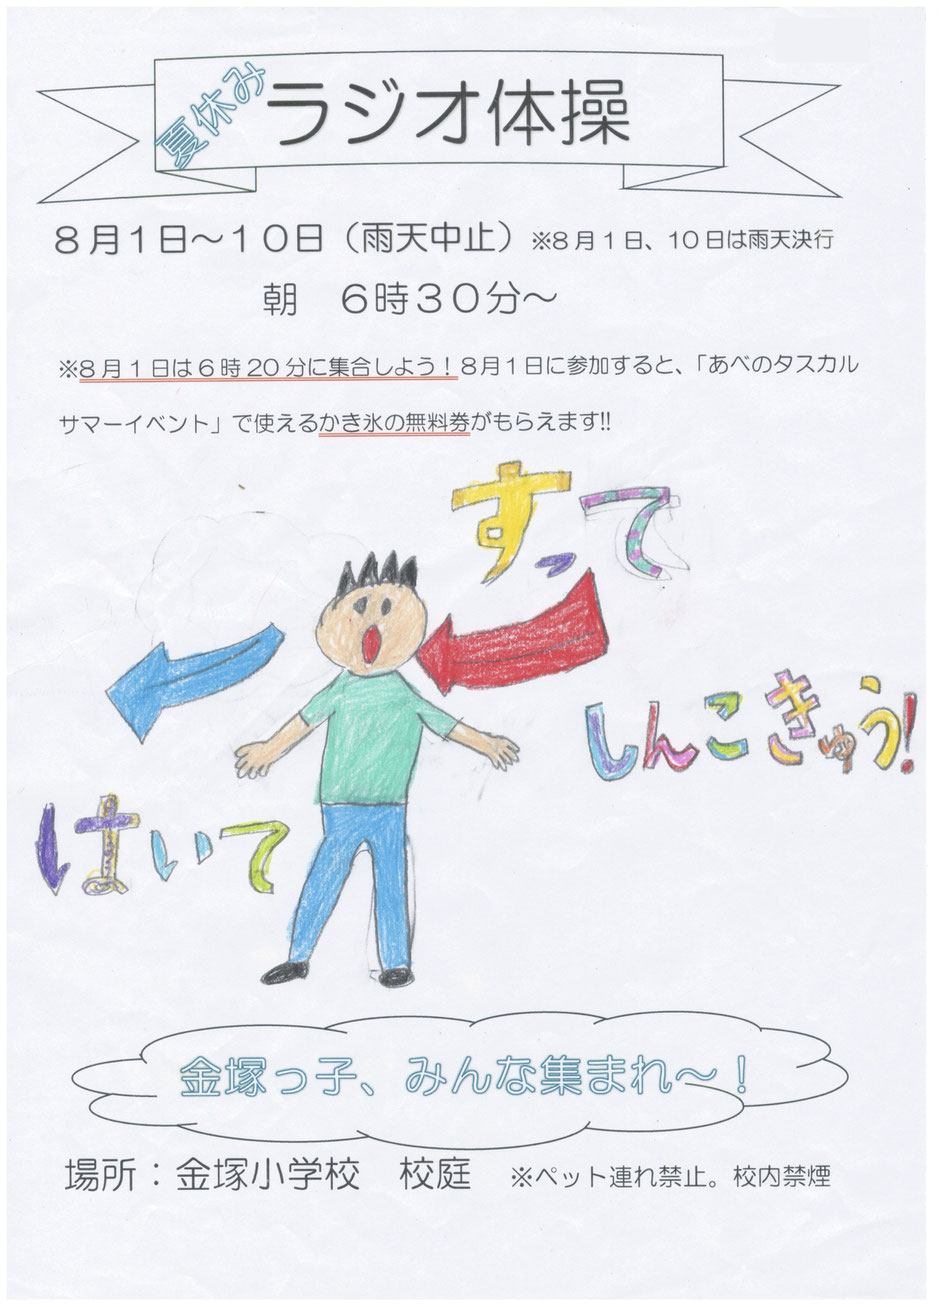 夏休み ラジオ体操
8月1日～10日（雨天中止）※8月1日、10日は雨天決行
朝　6時30分～
※8月1日は6時20分に集合しよう！8月1日に参加すると、「あべのタスカル
サマーイベント」で使えるかき氷の無料券がもらえます!!
すって
しんこきゅう！
はいて
金塚っ子、みんな集まれ～！
場所：金塚小学校　校庭　※ペット連れ禁止。校内禁煙